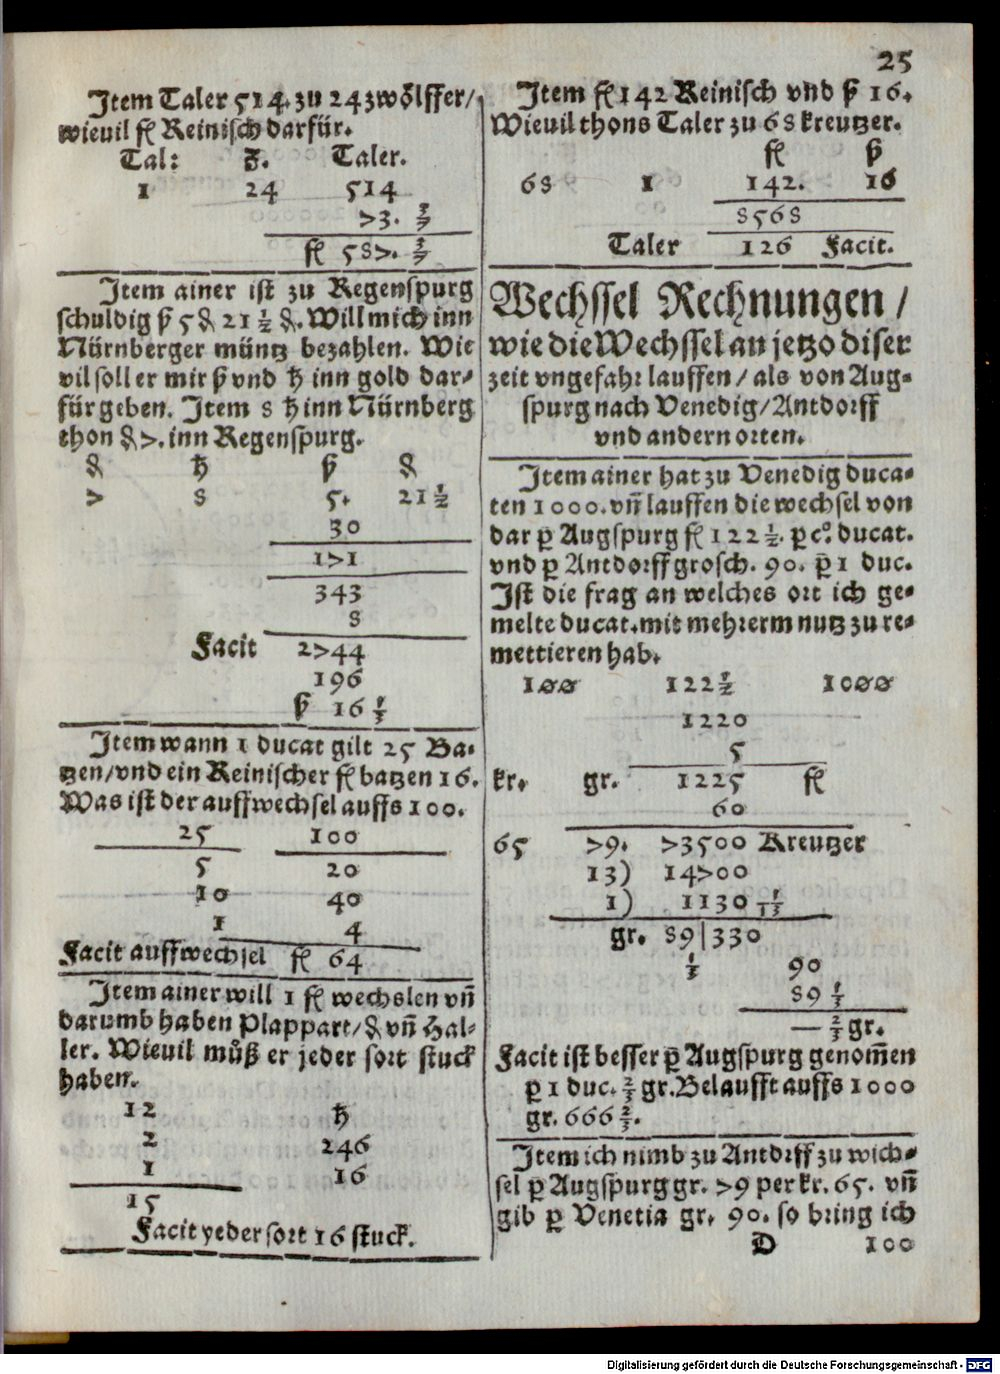 25
Item Taler 514. zu 24 zwölffer/
wieuil fl Reinisch darfür.
Tal: ß. Taler.
1 24 514
73. 3/7
fl 587. 3/7
Item ainer ist zu Regenspurg
schuldig ß 5 ₰ 21 1/2 ₰. Will mich inn
Nürnberger müntz bezahlen. Wie
vil soll er mir ß vnd ℔ inn gold dar⸗
für geben. Item 8 ℔ inn Nürnberg
thon ₰ 7. inn Regenspurg.
₰ ℔ ß ₰
7 8 5. 21 1/2
30
171
343
8
Facit 2744
196
ß 16 1/3
Item wann 1 ducat gilt 25 Ba⸗
tzen/ vnd ein Reinischer fl batzen 16.
Was ist der auffwechsel auffs 100.
25 100
5 20
10 40
1 4
Facit auffwechsel fl 64
Item ainer will 1 fl wechslen vñ
darumb haben Plappart/ ₰ vñ Hal⸗
ler. Wieuil müß er jeder sort stuck
haben.
12 ℔
2 246
1 16
15
Facit yeder sort 16 stuck.
Item fl 142 Reinisch vnd ß 16.
Wieuil thons Taler zu 68 kreutzer.
fl ß
68 1 142. 16
8568
Taler 126 Facit.
Wechssel Rechnungen /
wie die Wechssel an jetzo diser
zeit vngefahr lauffen / als von Aug⸗
spurg nach Venedig/ Antdorff
vnd andern orten.
Item ainer hat zu Venedig duca⸗
ten 1000. vñ lauffen die wechsel von
dar p̄ Augspurg fl 122 1/2. p̄ cº. ducat.
vnd p̄ Antdorff grosch. 90. p̄ 1 duc.
Ist die frag an welches ort ich ge⸗
melte ducat. mit mehrerm nutz zu re⸗
mettieren hab.
100 122 1/2 1000
1220
5
kr. gr. 1225 fl
60
65 79. 73500 Kreutzer
13) 14700
1) 1130 1/13
gr. 89|330
1/3 90
89 1/3
— 2/3 gr.
Facit ist besser p̄ Augspurg genom̄en
p̄ 1 duc. 2/3 gr. Belaufft auffs 1000
gr. 666 2/3.
Item ich nimb zu Antdrff zu wich⸗
sel p̄ Augspurg gr. 79 per kr. 65. vñ
gib p̄ Venetia gr. 90. so bring ich
D 100
Digitalisierung gefördert durch die Deutsche Forschungsgemeinschaft - DFG